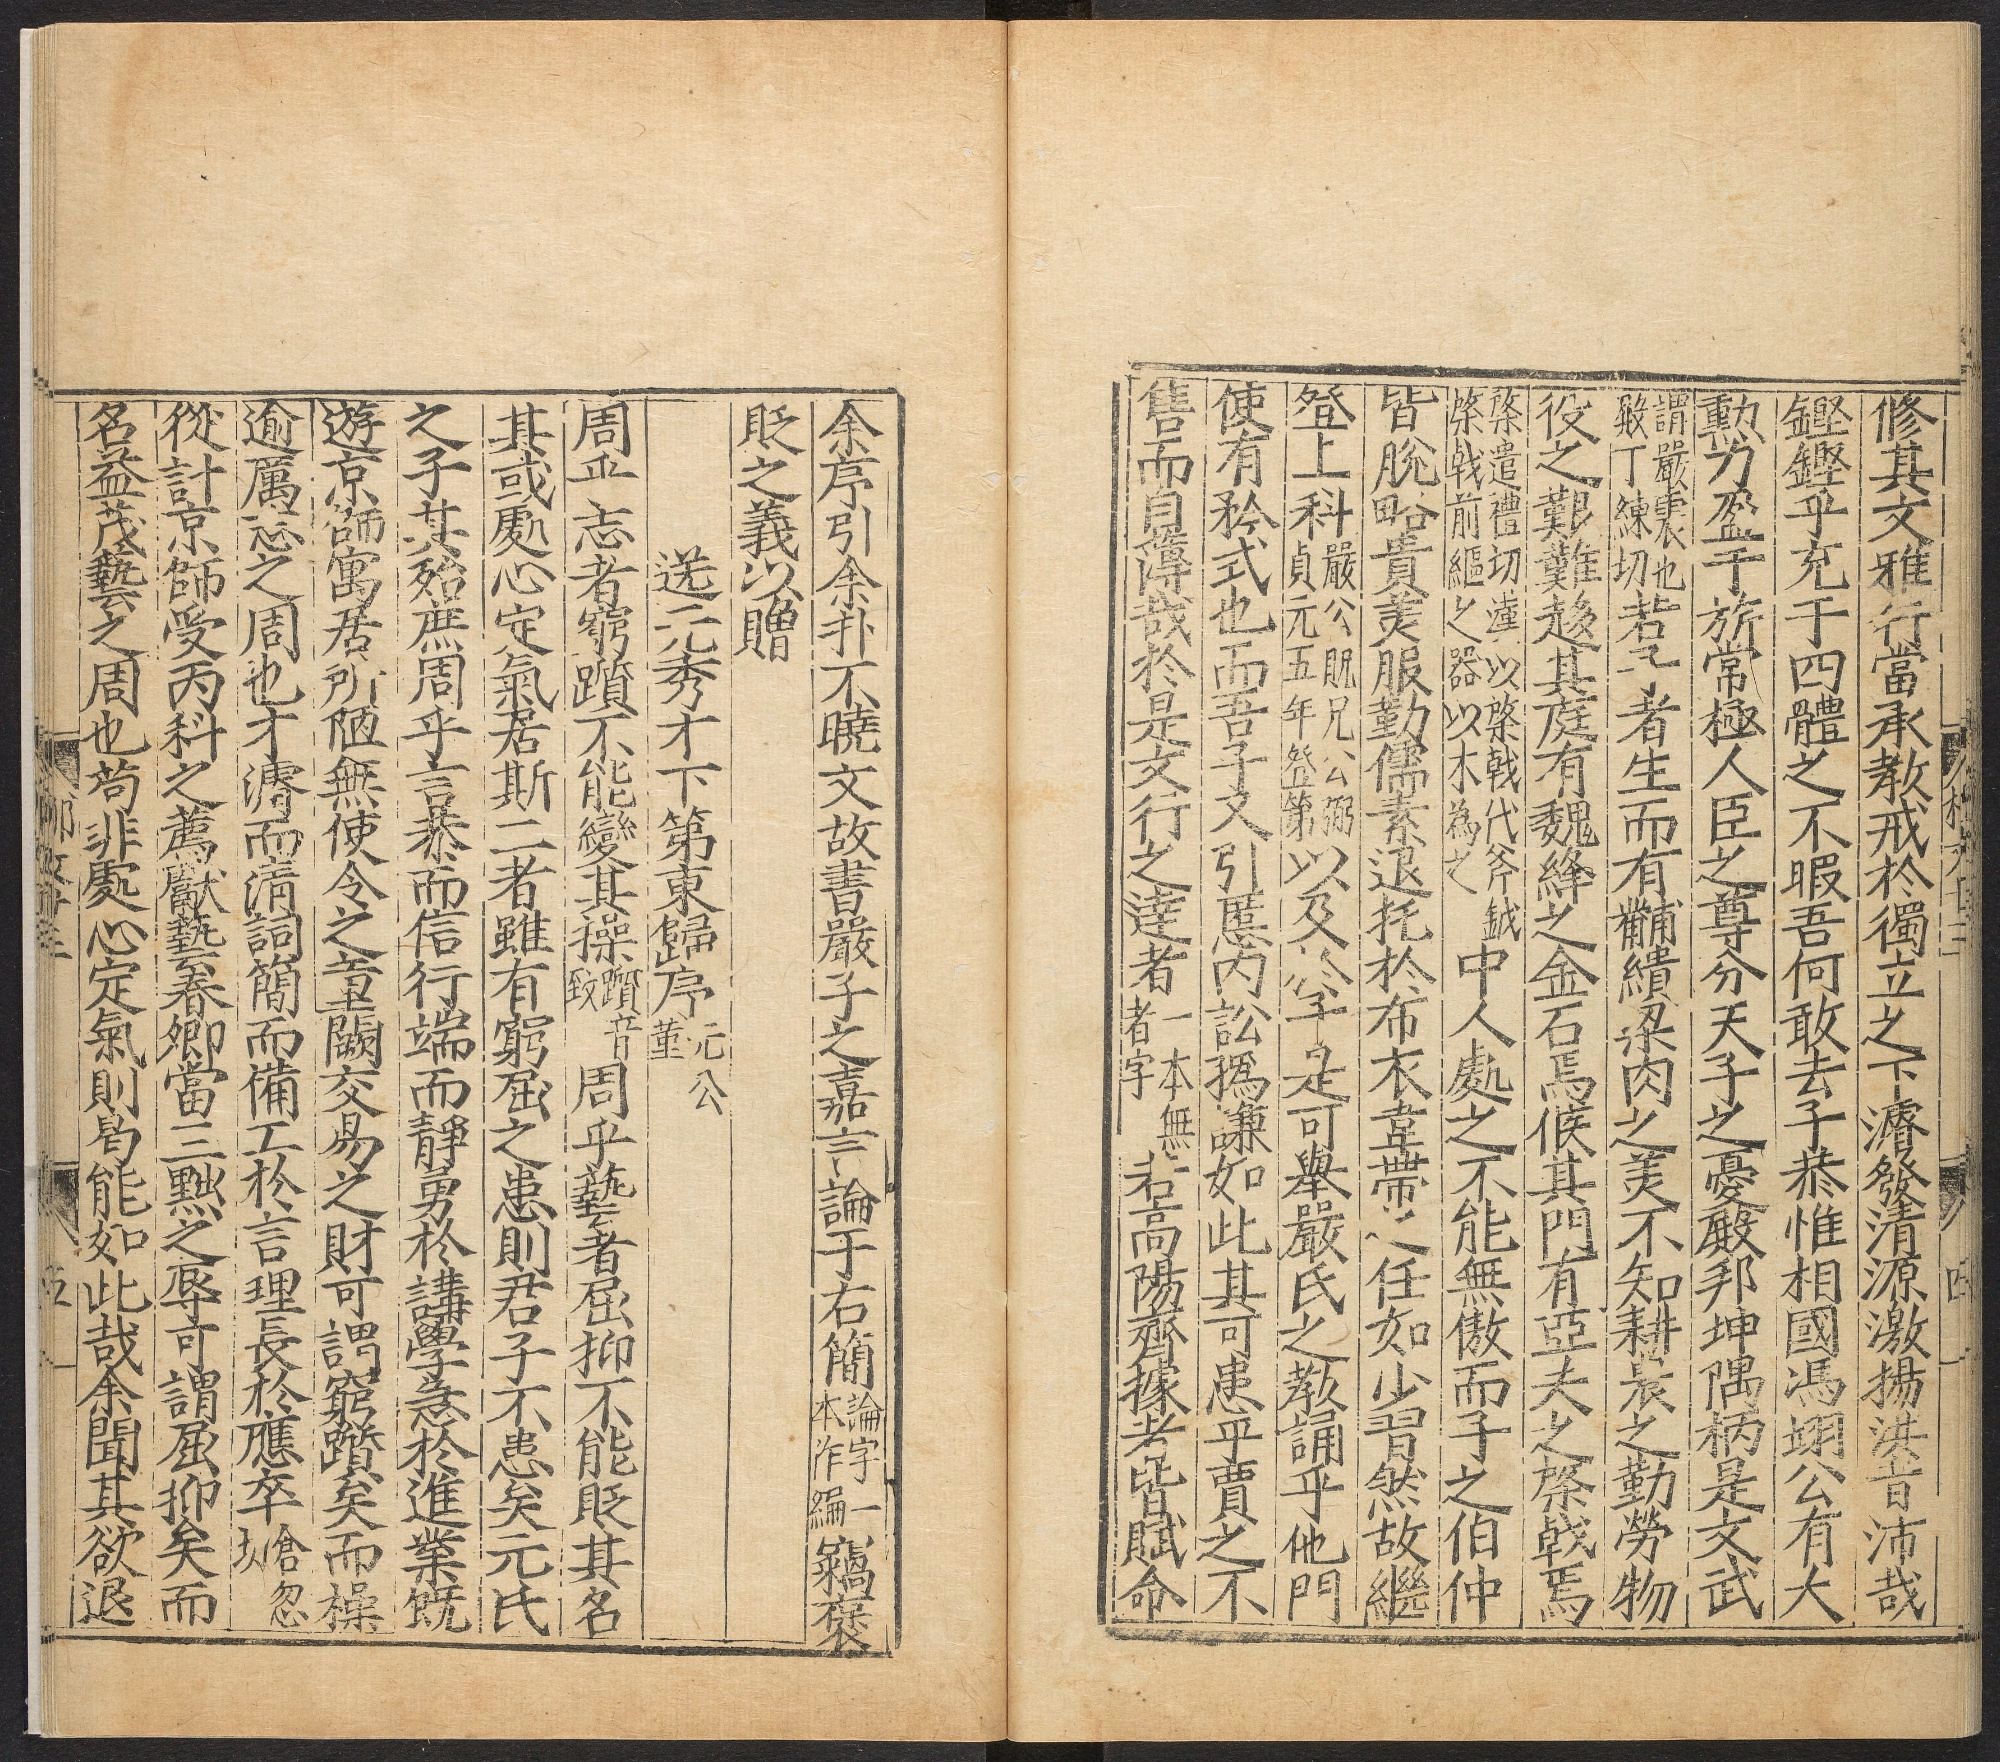 修其文雅行當承教戒於獨立之下濬發清源激揚洪音沛哉
鏗鏗乎充于四體之不暇吾何敢去子恭惟相國馮翊公有大
勳力盈于旂常極人臣之尊分天子之憂殿邦坤隅柄是文武
謂嚴震也殿丁練切若子者生而有黼繢粱肉之美不知耕農之勤勞物
役之艱難趍其庭有魏絳之金石焉候其門有亞夫之棨戟焉
棨遣禮切漢以棨戟代斧鉞棨戟前驅之器以木為之中人處之不能無傲而子之伯仲
皆脫略貴美服勤儒素退托於布衣韋帶之任如少習然故繼
登上科嚴公貺兄公弼貞元五年登第以及於子是可舉嚴氏之教誦乎他門
使有矜式也而吾子又引慝內訟撝謙如此其可患乎賈之不
售而自薄哉於是文行之達者一本無者字若高陽齊據者皆賦命
余序引余朴不曉文故書嚴子之嘉言論于右簡論字一本作編竊褒
貶之義以贈
送元秀才下第東歸序元公瑾
周乎志者窮躓不能變其操躓音致周乎藝者屈抑不能貶其名
其或處心定氣居斯二者雖有窮屈之患則君子不患矣元氏
之子其殆庶周乎言恭而信行端而靜勇於講學急於進業既
遊京師寓居所陋無使令之童闕交易之財可謂窮躓矣而操
逾厲志之周也才濬而清詞簡而備工於言理長於應卒倉忽切
從計京師受丙科之薦獻藝春卿當三黜之辱可謂屈抑矣而
名益茂藝之周也苟非處心定氣則曷能如此哉余聞其欲退